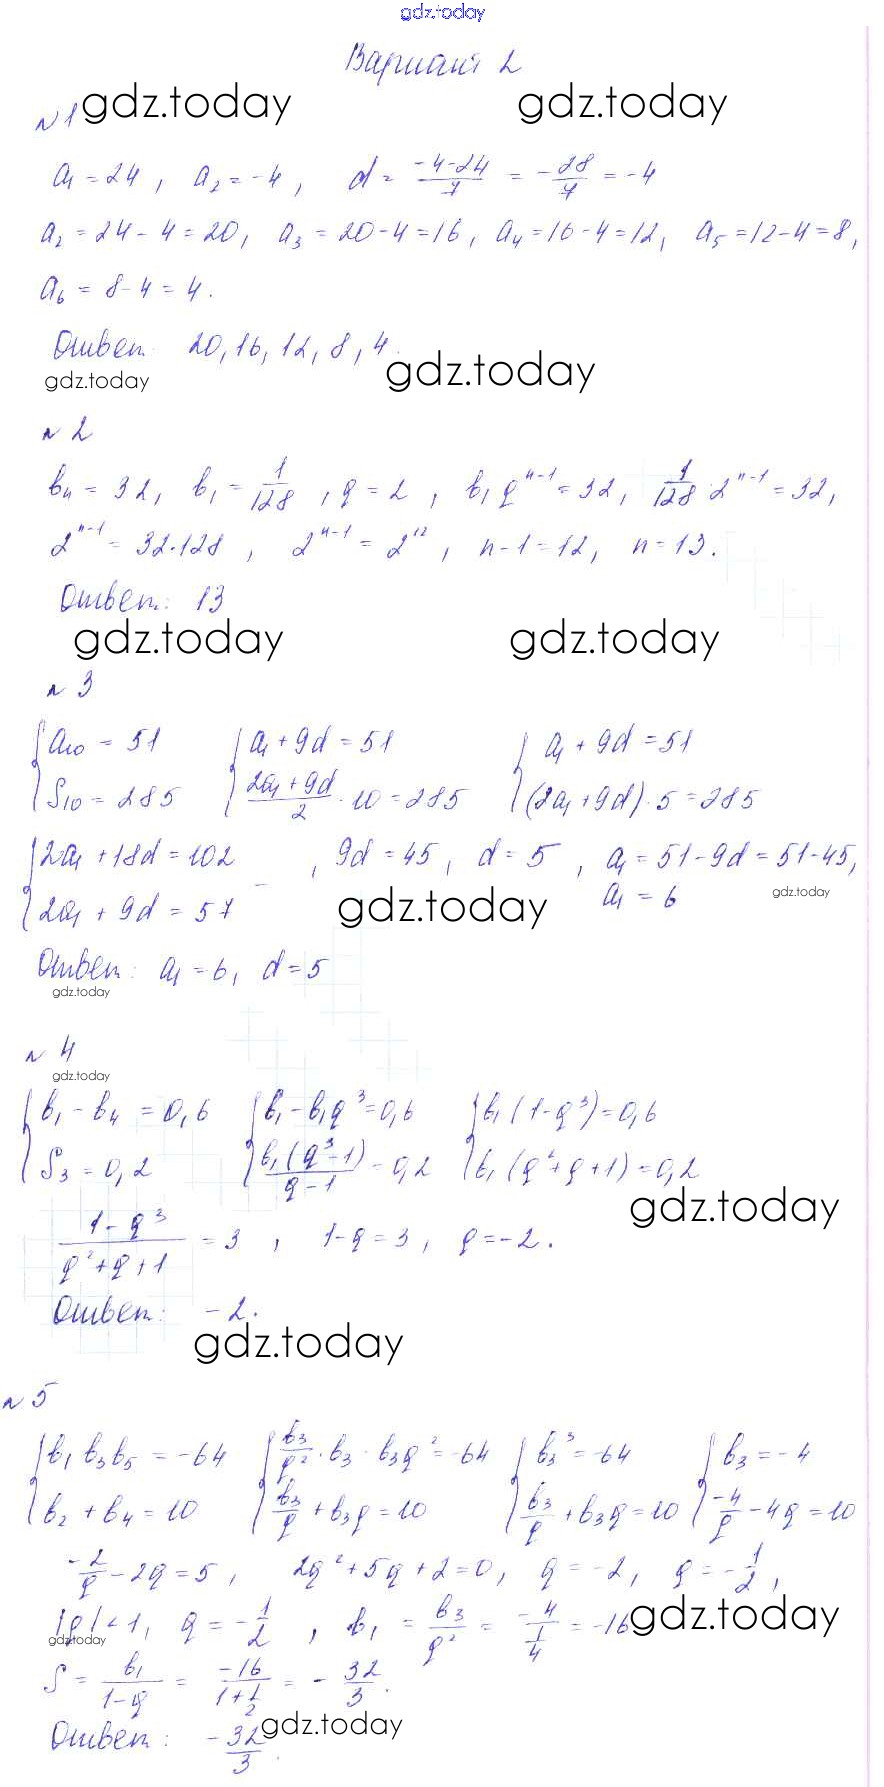 gdz.today
Вариант 2
gdz.today gdz.today
№1
a₁ = 24, a₂ = -4, d = (-4-24)/7 = -28/7 = -4
a₂ = 24-4 = 20, a₃ = 20-4 = 16, a₄ = 16-4 = 12, a₅ = 12-4 = 8,
a₆ = 8-4 = 4.
Ответ: 20, 16, 12, 8, 4.
gdz.today gdz.today
№2
bₙ = 32, b₁ = 1/128, q = 2, b₁qⁿ⁻¹ = 32, 1/128·2ⁿ⁻¹ = 32,
2ⁿ⁻¹ = 32·128, 2ⁿ⁻¹ = 2¹², n-1 = 12, n = 13.
Ответ: 13
gdz.today gdz.today
№3
{a₁₀ = 51 {a₁+9d = 51 {a₁+9d = 51
{S₁₀ = 285 {(2a₁+9d)/2·10 = 285 {(2a₁+9d)·5 = 285
{2a₁+18d = 102 - , 9d = 45, d = 5, a₁ = 51-9d = 51-45,
{2a₁+9d = 57 gdz.today a₁ = 6 gdz.today
Ответ: a₁ = 6, d = 5
gdz.today
№4
gdz.today
{b₁-b₄ = 0,6 {b₁-b₁q³ = 0,6 {b₁(1-q³) = 0,6
{S₃ = 0,2 {b₁(q³-1)/(q-1) = 0,2 {b₁(q²+q+1) = 0,2
gdz.today
(1-q³)/(q²+q+1) = 3, 1-q = 3, q = -2.
Ответ: -2.
gdz.today
№5
{b₁b₃b₅ = -64 {b₃/q²·b₃·b₃q² = -64 {b₃³ = -64 {b₃ = -4
{b₂+b₄ = 10 {b₃/q+b₃q = 10 {b₃/q+b₃q = 10 {-4/q-4q = 10
-2/q-2q = 5, 2q²+5q+2 = 0, q = -2, q = -1/2,
|q|<1, q = -1/2, b₁ = b₃/q² = -4/(1/4) = -16 gdz.today
gdz.today
S = b₁/(1-q) = -16/(1+1/2) = -32/3.
Ответ: -32/3. gdz.today